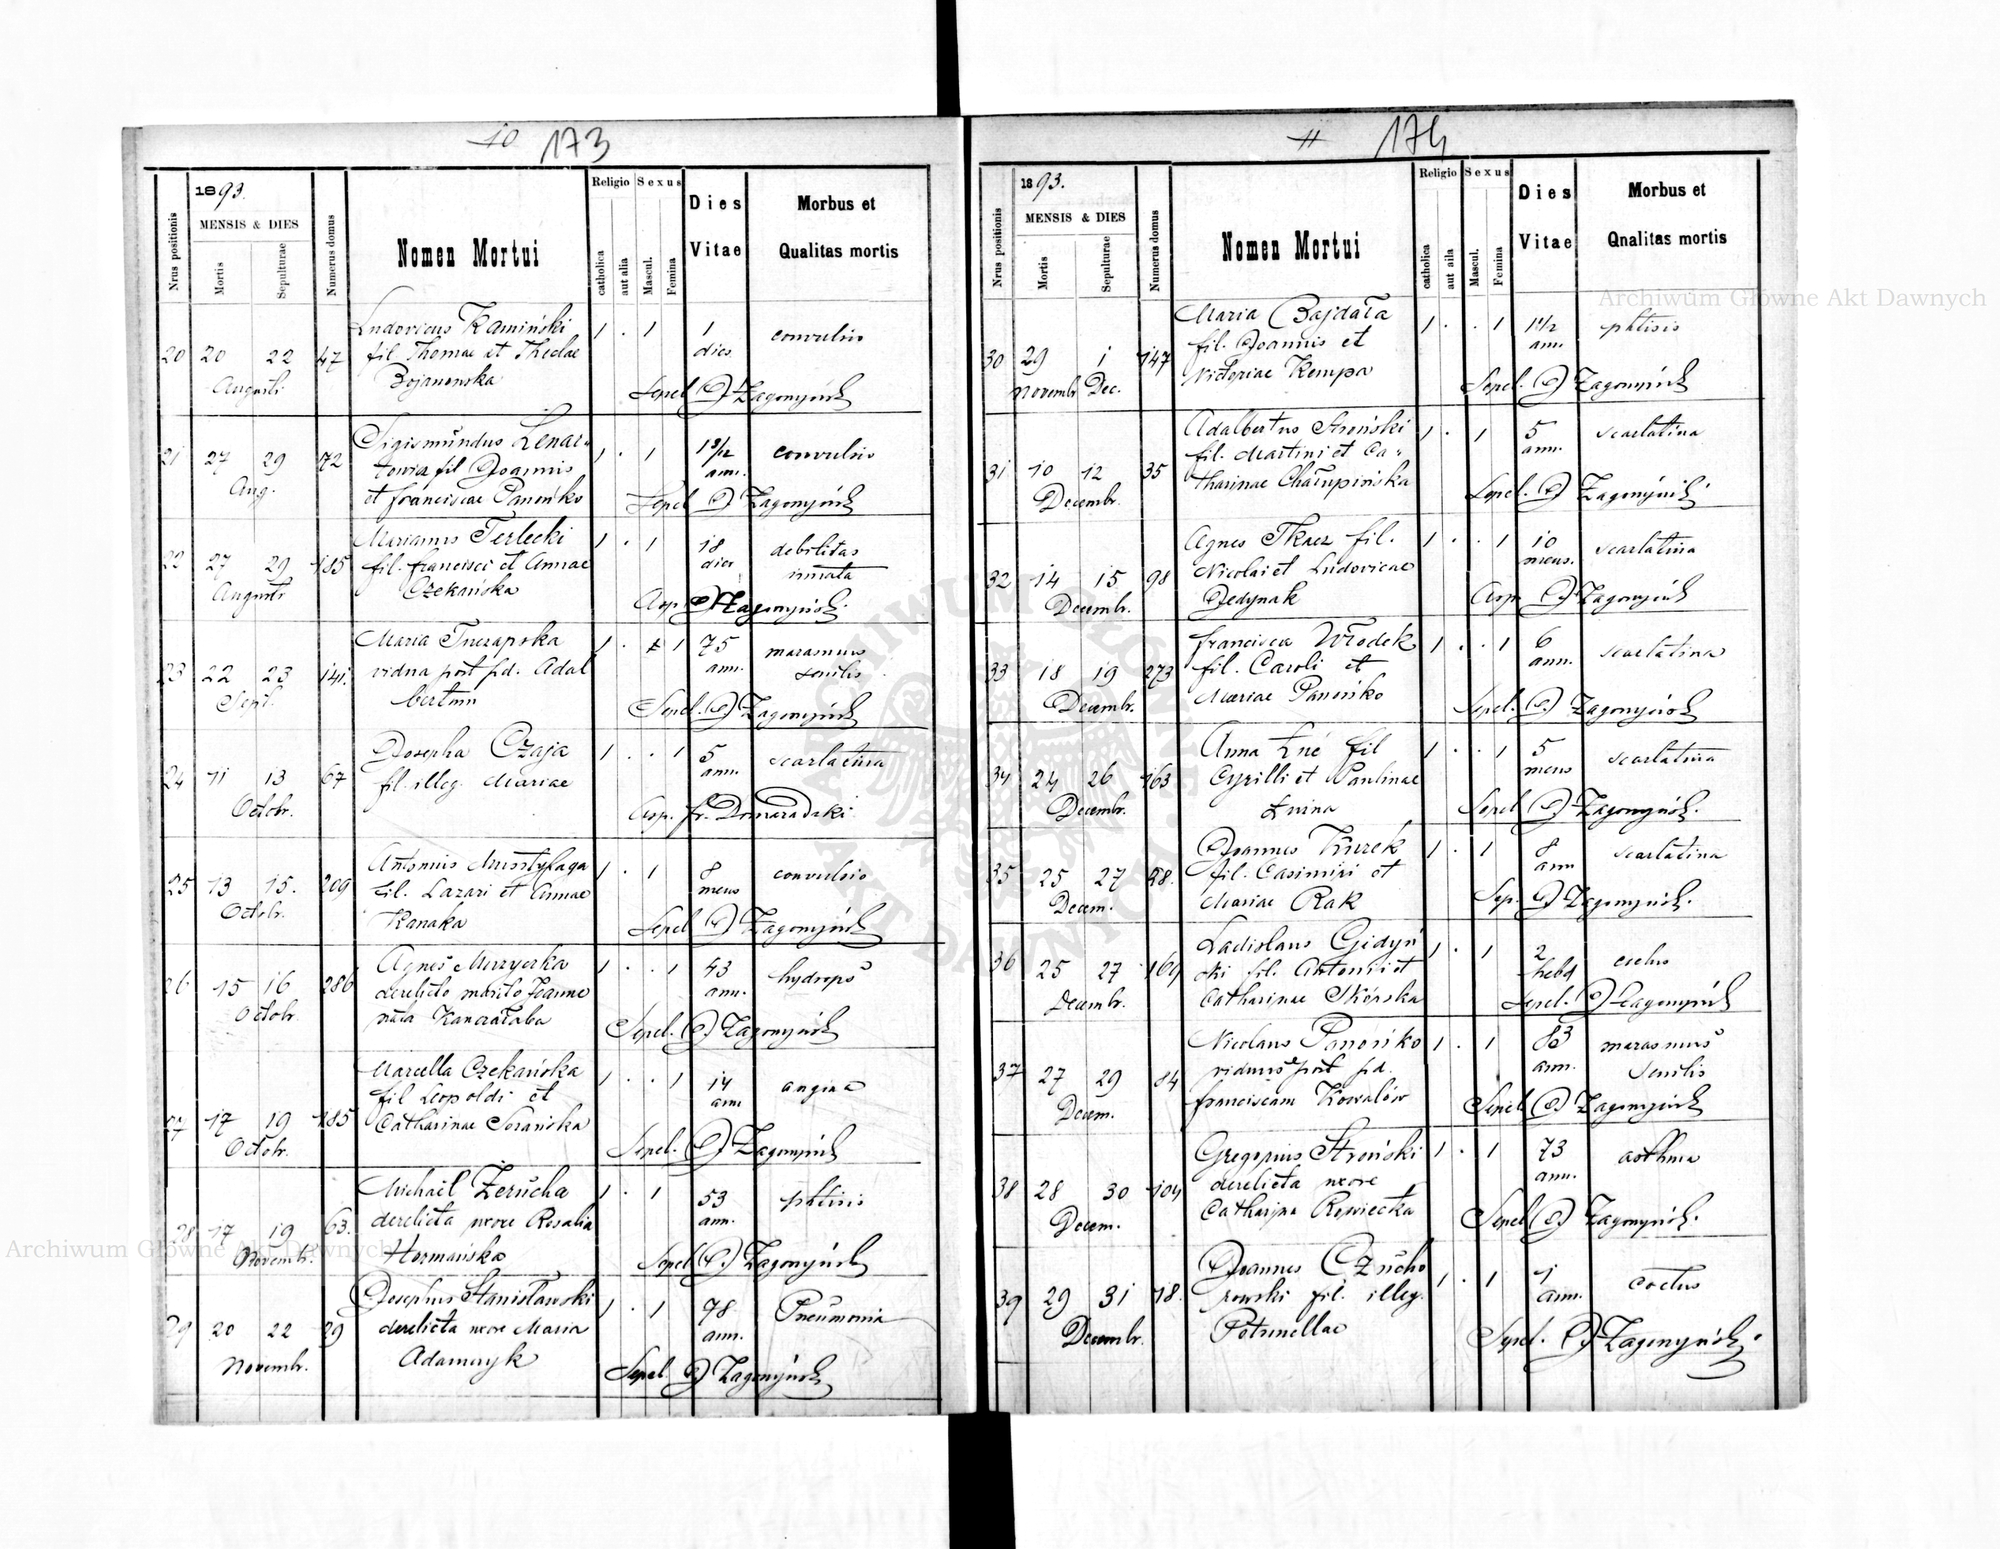 10 173
1893.
MENSIS & DIES
Nrus positionis
Mortis
Sepulturae
Numerus domus
Nomen Mortui
Religio
catholica
aut alia
Sexus
Mascul.
Femina
Dies Vitae
Morbus et
Qualitas mortis
20 20 22 47 Ludovicus Kamiński 1 . 1 1 convulsio
fil. Thomae et Theclae dies
Augusti Bojanowska Sepel. Zagonyński
21 27 29 72 Sigismundus Lenar- 1 . 1 convulsio
fil Joannis ann.
Aug. et Franciscae Panońko Sepel Zagonyński
22 27 29 185 Marianus Terlecki 1 . 1 18 debilitas
fil. Francisci et Annae dies innata
Augusti Czekańska Asp. Zagonyński
23 22 23 141. Maria 1 . 1 75 marasmus
vidua post pd. Adal ann. senilis
Sept. bertum Sepel. Zagonyński
24 11 13 67 Josepha Czaja 1 . . 1 5 scarlatina
fil. illeg. Mariae ann.
Octobr. Asp. fr. Domaradzki
25 13 15. 209 Antonius 1 . 1 8 convulsio
fil. Lazari et Annae mens
Octobr. Kanaka Sepel Zagonyński
26 15 16 286 Agnes 1 . . 1 43 hydrops
derelicto marito Joanne ann.
Octobr. nata Sepel. Zagonyński
27 17 19 185 Marcella Czekańska 1 . . 1 14 angina
fil Leopoldi et ann.
Octobr. Catharinae Sorańska Sepel. Zagonyński
28 17 19 63. Michael Zerucha 1 . 1 53 phtisis
derelicta uxore Rosalia ann.
Novembr. Hormańska Sepel Zagonyński
29 20 22 29 Josephus Stanisławski 1 . 1 78 Pneumonia
derelicta uxore Maria ann.
Novembr. Adamczyk Sepel. Zagonyński
11 174
1893.
MENSIS & DIES
Nrus positionis
Mortis
Sepulturae
Numerus domus
Nomen Mortui
Religio
catholica
aut aila
Sexus
Mascul.
Femina
Dies Vitae
Morbus et
Qnalitas mortis
30 29 1 147 Maria Bajdała 1 . . 1 phtisis
fil. Joannis et ann.
Novembr Dec. Victoriae Kempa Sepel. Zagonyński
31 10 12 35 Adalbertus Stroński 1 . 1 5 scarlatina
fil. Martini et Ca- ann.
Decembr. tharinae Charupińska Sepel. Zagonyński
32 14 15 98 Agnes Tkacz fil. 1 . . 1 10 scarlatina
Nicolai et Ludovicae mens.
Decembr. Jedynak Asp Zagonyński
33 18 19 273 Francisca Włodek 1 . . 1 6 scarlatina
fil. Caroli et ann.
Decembr. Mariae Panońko Sepel. Zagonyński
34 24 26 163 Anna fil 1 . . 1 5 scarlatina
Cyrilli et Paulinae mens
Decembr. Sepel Zagonyński.
35 25 27 28. Joannes Kurek 1 . 1 8 scarlatina
fil. Casimiri et ann
Decem. Mariae Rak Sep. Zagonyński.
36 25 27 169 Ladislaus Gidyń 1 . 1 2
ski fil. Antonii et hebd
Decembr. Catharinae Skórska Sepel. Zagonyński
37 27 29 84 Nicolaus Panońko 1 . 1 83 marasmus
viduus post pd. ann. senilis
Decem. Franciscam Kowalów Sepel Zagonyński
38 28 30 104 Gregorius Stroński 1 . 1 73 asthma
derelicta uxore ann.
Decem. Catharina Rewiecka Sepel Zagonyński.
39 29 31 18. Joannes Czucho 1 . 1 1
rowski fil. illeg. ann.
Decembr. Petrunellae Sepel. Zagonyński.
Archiwum Główne Akt Dawnych
Archiwum Główne Akt Dawnych
ARCHIWUM GŁÓWNE AKT DAWNYCH